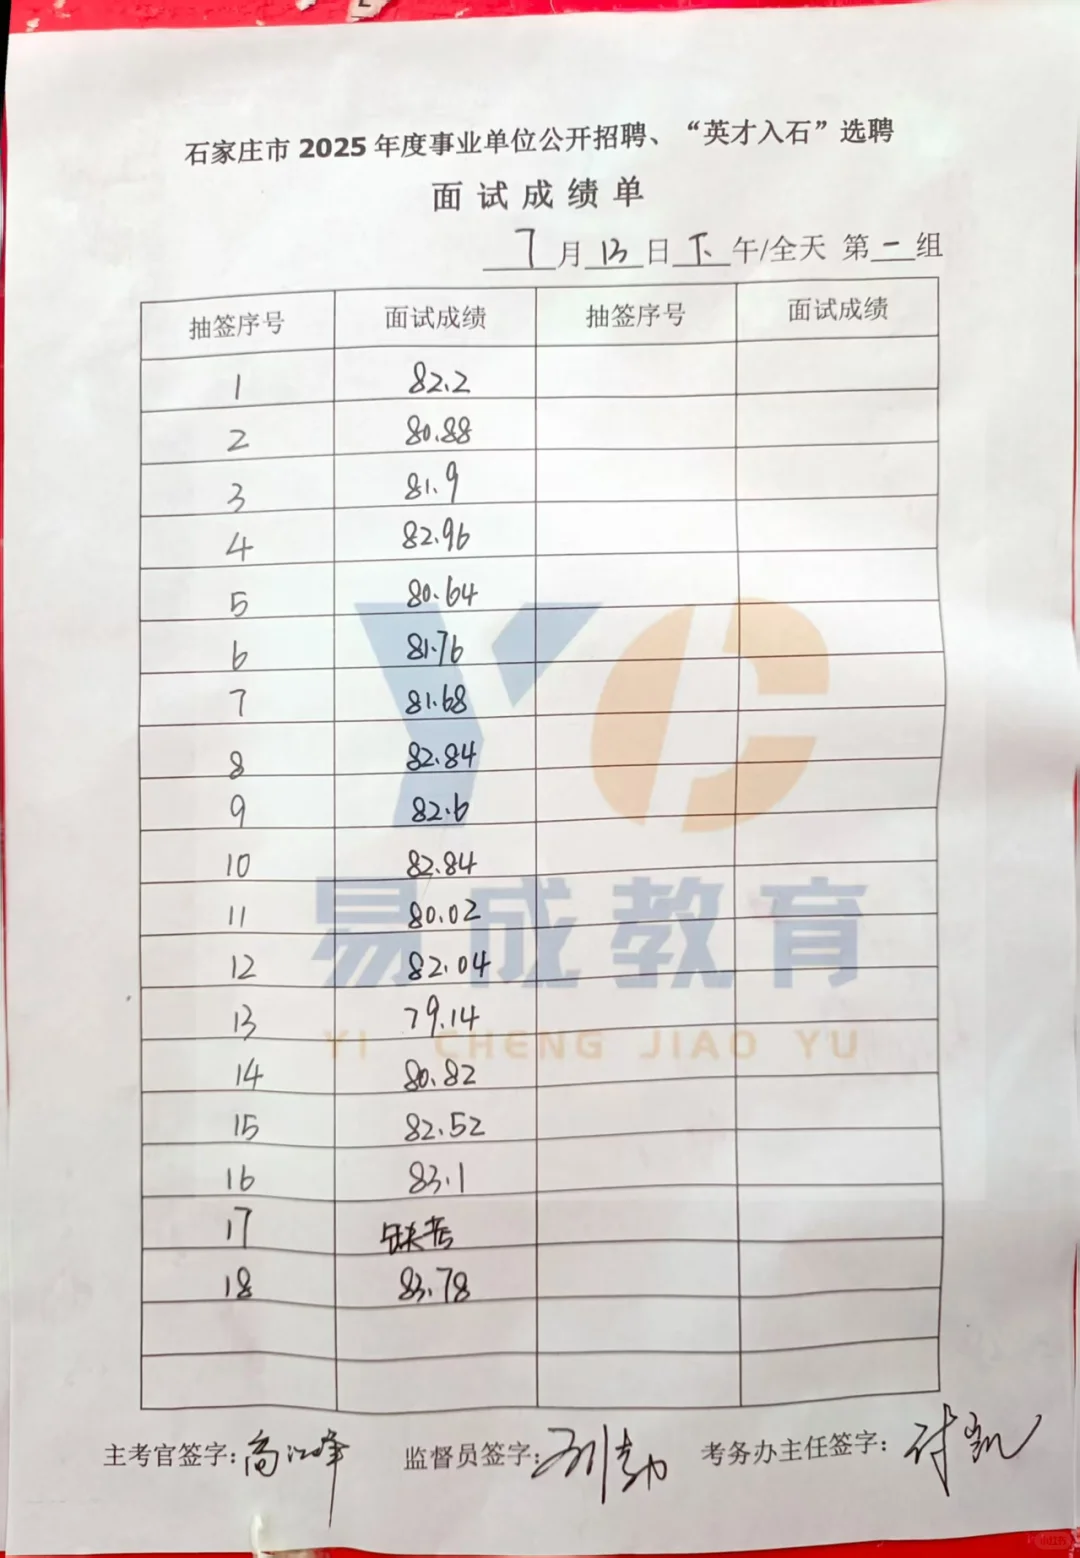 石家庄市 2025 年度事业单位公开招聘、“英才入石”选聘
面试成绩单
7月13日下午/全天 第一组
抽签序号 面试成绩 抽签序号 面试成绩
1 82.2
2 80.88
3 81.9
4 82.96
5 80.64
6 81.76
7 81.68
8 82.84
9 82.6
10 82.84
11 80.02
12 82.04
13 79.14
14 80.82
15 82.52
16 83.1
17 缺考
18 83.78
主考官签字:高江峰 监督员签字: 考务办主任签字:
YC
易成教育
YI CHENG JIAO YU
小红书